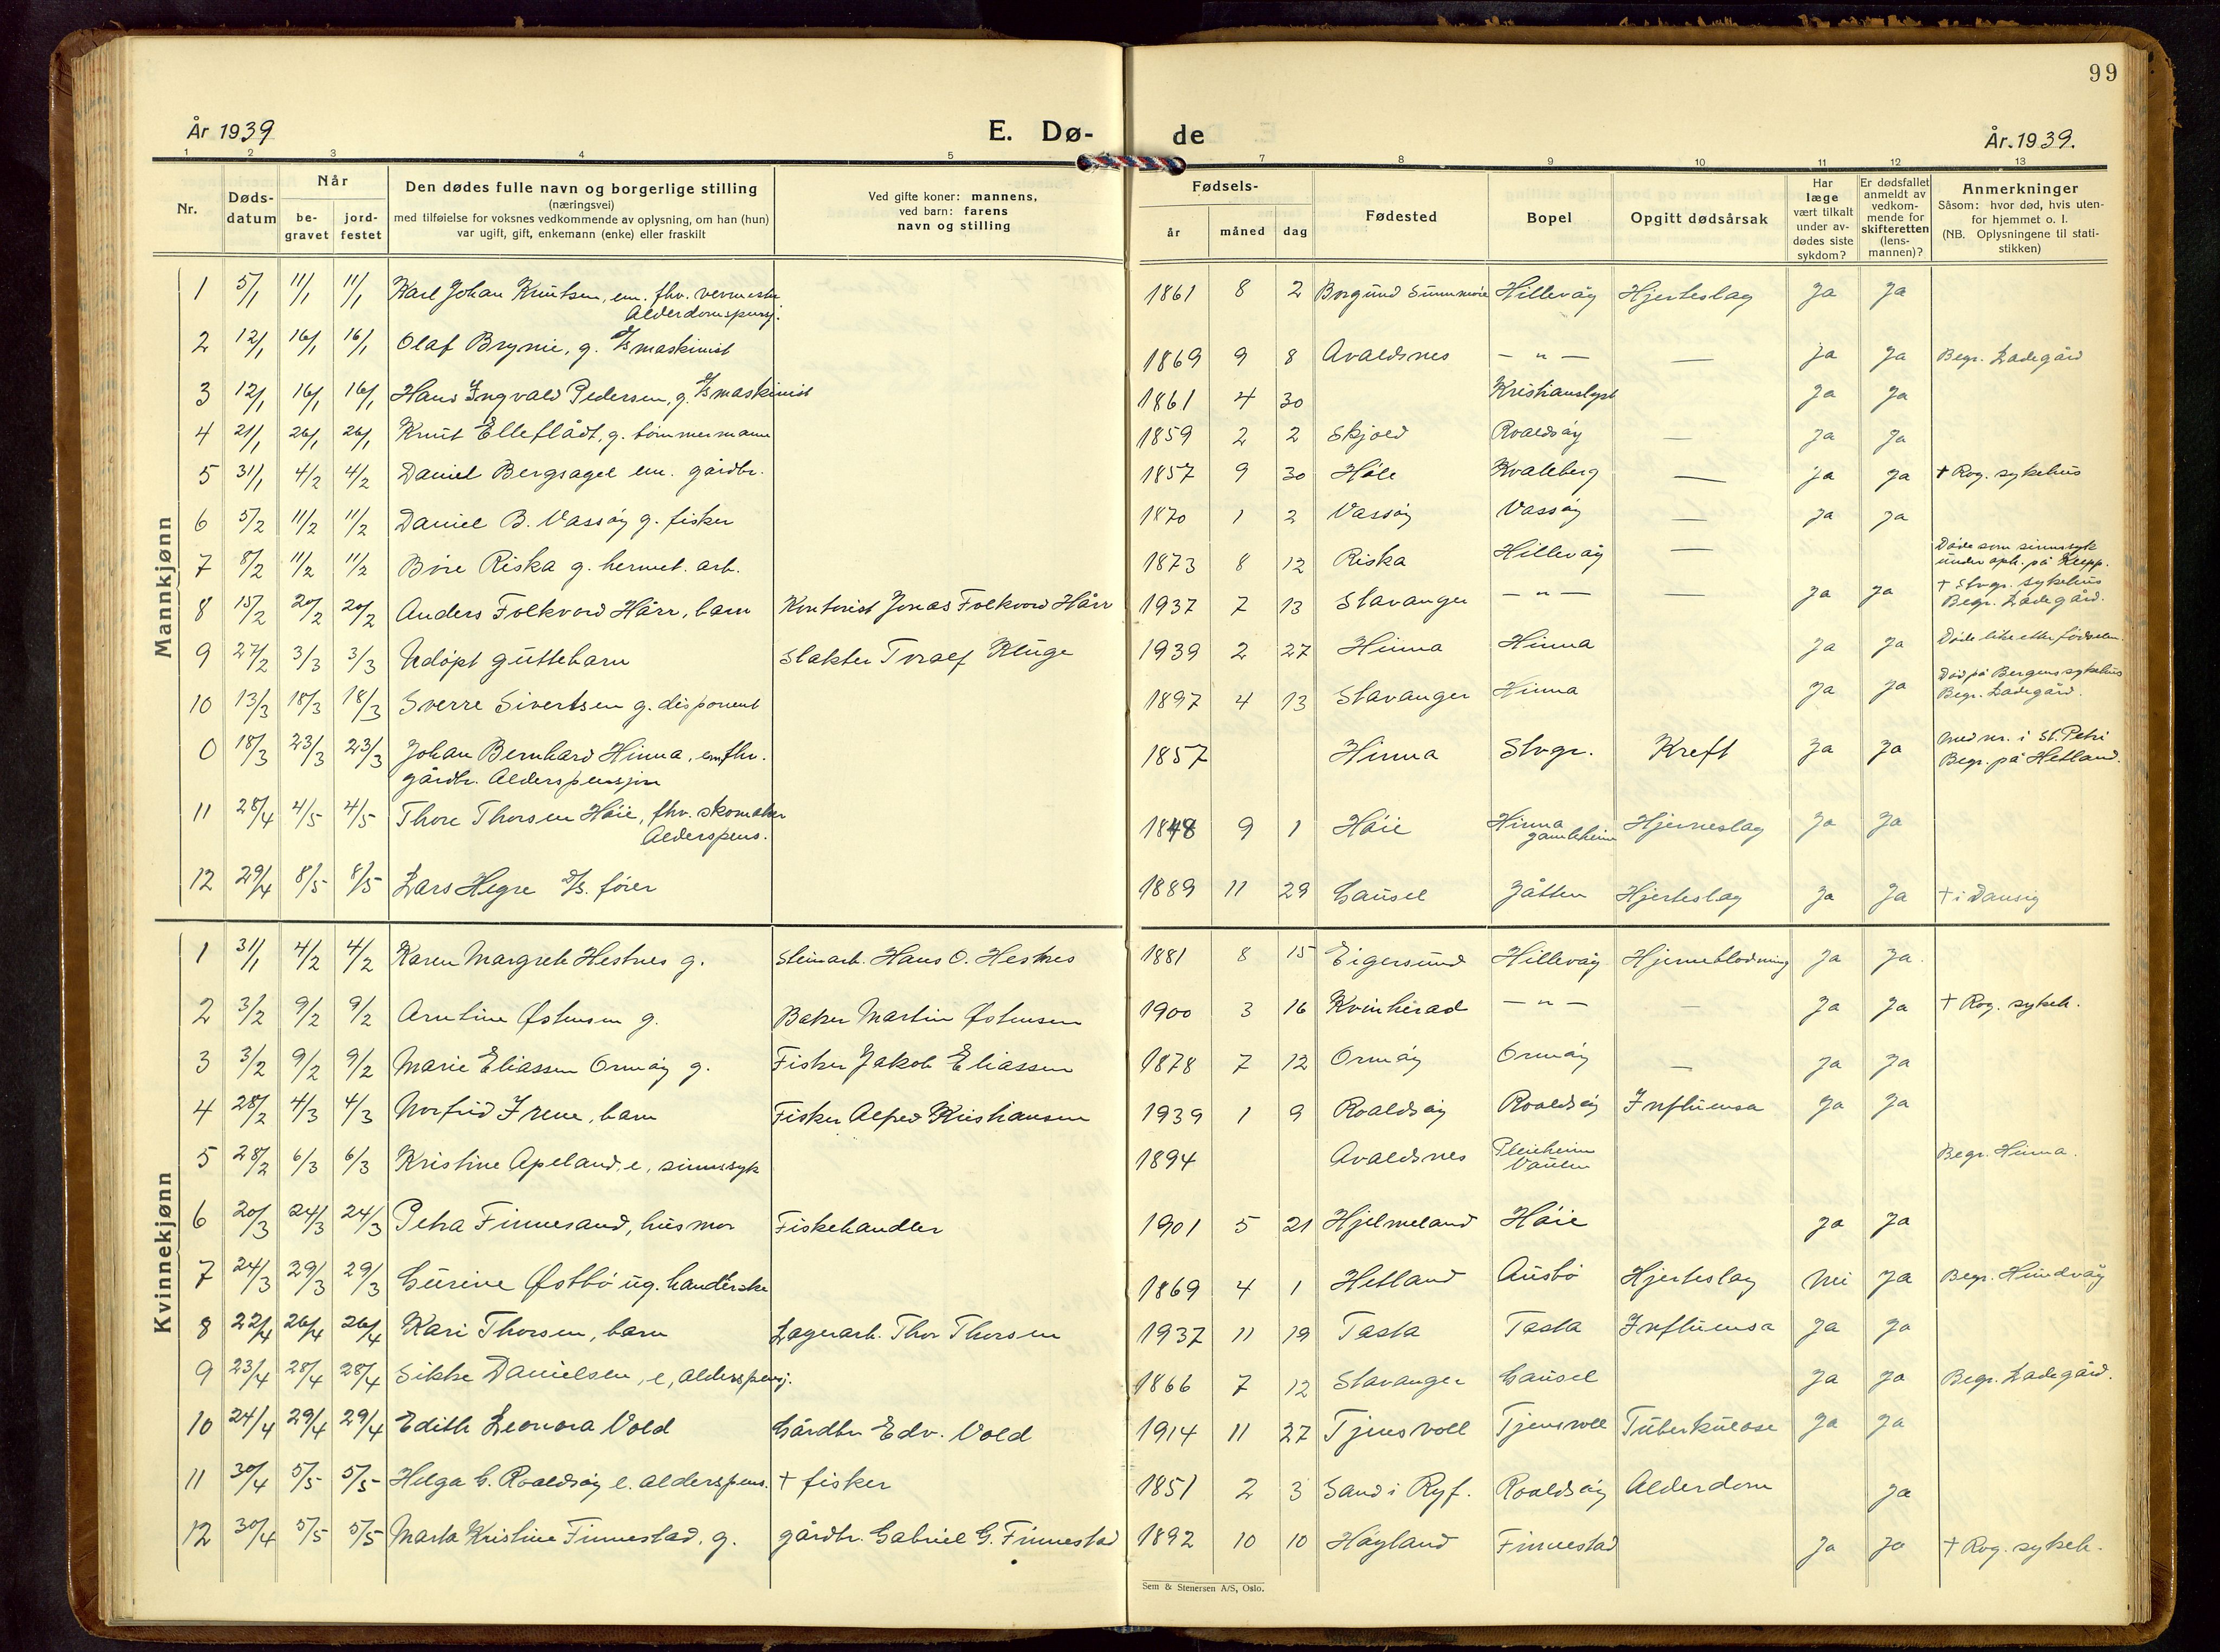 99
År 1939 E. Dø- de År 1939.
1 2 3 4 5 7 8 9 10 11 12 13
Nr. Dødsdatum Når begravet jordfestet
Den dødes fulle navn og borgerlige stilling
(næringsvei)
med tilføielse for voksnes vedkommende av oplysning, om han (hun)
var ugift, gift, enkemann (enke) eller fraskilt
Ved gifte koner: mannens,
ved barn: farens
navn og stilling
Fødsels-
år måned dag
Fødested
Bopel
Opgitt dødsårsak
Har
læge
vært tilkalt
under av-
dødes siste
sykdom?
Er dødsfallet
anmeldt av
vedkom-
mende for
skifteretten
(lens-
mannen)?
Anmerkninger
Såsom: hvor død, hvis uten-
for hjemmet o. l.
(NB. Oplysningene til stati-
stikken)
Mannkjønn
1 5/1 11/1 11/1 Karl Johan Knutsen, em. fhv. Alderdomspensj. 1861 8 2 Borgund Sunnmøre Hillevåg Hjerteslag Ja Ja
2 12/1 16/1 16/1 Olaf Brynie, g. d/s maskinist 1869 9 8 Avaldsnes — " — — Ja Ja Begr. Ladegård
3 12/1 16/1 16/1 Hans Ingvald Pedersen, g. d/s maskinist 1861 4 30 Kristianslyst Ja Ja
4 21/1 26/1 26/1 Knut Elleflådt, g. tømmermann 1859 2 2 Skjold Roaldsøy — Ja Ja
5 31/1 4/2 4/2 Daniel Bergsagel em. gårdbr. 1857 9 30 Høle Kvaleberg — Ja Ja † Rog. sykehus
6 5/2 11/2 11/2 Daniel B. Vassøy g. fisker 1870 1 2 Vassøy Vassøy — Ja Ja
7 8/2 11/2 11/2 Bore Riska g. hermet. arb. 1873 8 12 Riska Hillevåg — Døde som sinnssyk under oph. på Klepp.
8 15/2 20/2 20/2 Anders Folkvord Hårr, barn Kontorist Jonas Folkvord Hårr 1937 7 13 Stavanger — " — — Ja Ja † Stvgr. sykehus Begr. Ladegård.
9 27/2 3/3 3/3 Udøpt guttebarn Slakter Toralf Kluge 1939 2 27 Hinna Hinna Ja Ja Døde like etter fødselen.
10 13/3 18/3 18/3 Sverre Sivertsen g. disponent 1897 4 13 Stavanger Hinna Ja Ja Død på Bergens sykehus Begr. Ladegård.
0 18/3 23/3 23/3 Johan Bernhard Hinna, em. fhv. gårdbr. Alderspensjon 1857 Hinna Stvgr. Kreft Ja Ja Med nr. i St. Petri Begr. på Hetland.
11 28/4 4/5 4/5 Thore Thorsen Høie, fhv. skomaker Alderspens. 1848 9 1 Høie Hinna gamleheim Hjerneslag Ja Ja
12 29/4 8/5 8/5 Lars Hegre d/s. fører 1889 11 29 Gausel Jåtten Hjerteslag Ja Ja † i Dansig
Kvinnekjønn
1 31/1 4/2 4/2 Karen Margrete Hestnes g. Steinarb. Hans O. Hestnes 1881 8 15 Eigersund Hillevåg Hjerneblødning Ja Ja.
2 3/2 9/2 9/2 Arntine Østensen g. Baker Martin Østensen 1900 3 16 Kvinherad — " — — Ja Ja † Rog. sykeh.
3 3/2 9/2 9/2 Marie Eliassen Ormøy g. Fisker Jakob Eliassen 1878 7 12 Ormøy Ormøy — Ja Ja
4 28/2 4/3 4/3 Norfrid Irene, barn Fisker Alfred Kristiansen 1939 1 9 Roaldsøy Roaldsøy Influensa Ja Ja
5 28/2 6/3 6/3 Kristine Apeland, e, sinnssyk 1894 Avaldsnes Pleieheim Vaulen Begr. Hinna.
6 20/3 24/3 24/3 Petra Finnesand, husmor Fiskehandler 1901 5 21 Hjelmeland Høie Ja Ja
7 24/3 29/3 29/3 Gurine Østbø ug. handlerske 1869 4 1 Hetland Ausbø Hjerteslag Nei Ja Begr. Hundvåg
8 22/4 26/4 26/4 Kari Thorsen, barn Lagerarb. Thor Thorsen 1937 11 19 Tasta Tasta Influensa Ja Ja
9 23/4 28/4 28/4 Sikke Danielsen, e, alderspensj. 1866 7 12 Stavanger Gausel Ja Ja Begr. Ladegård.
10 24/4 29/4 29/4 Edith Leonora Vold Gårdbr Edv. Vold 1914 11 27 Tjensvoll Tjensvoll Tuberkulose Ja Ja
11 30/4 5/5 5/5 Helga G. Roaldsøy e. alderspens. † fisker 1851 2 3 Sand i Ryf. Roaldsøy Alderdom Ja
12 30/4 5/5 5/5 Marta Kristine Finnestad, g. gårdbr. Gabriel G. Finnestad 1892 10 10 Høyland Finnestad Ja Ja † Rog. sykeh.
Sem & Stenersen A/S, Oslo.